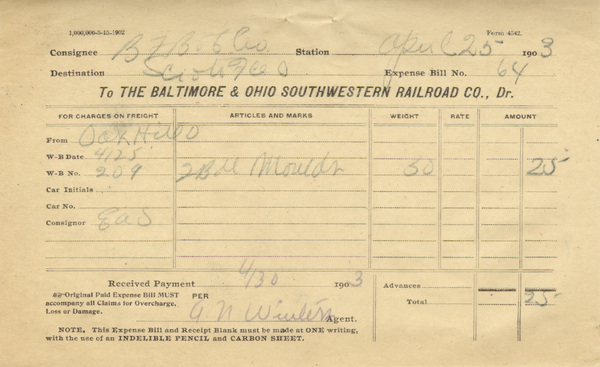 1,000,000-5-15-1902 Form 4542.
Consignee B F B & Co. Station April 25 1903
Destination Expense Bill No. 64
To THE BALTIMORE & OHIO SOUTHWESTERN RAILROAD CO., Dr.
FOR CHARGES ON FREIGHT ARTICLES AND MARKS WEIGHT RATE AMOUNT
From Oak Hill O
W-B Date 4/25
W-B No. 209 2 Bdl Moulds 50 25
Car Initials
Car No.
Consignor
Received Payment 4/30 1903 Advances
Original Paid Expense Bill MUST PER Total 25
accompany all Claims for Overcharge, G N Winters
Loss or Damage. Agent.
NOTE, This Expense Bill and Receipt Blank must be made at ONE writing,
with the use of an INDELIBLE PENCIL and CARBON SHEET.